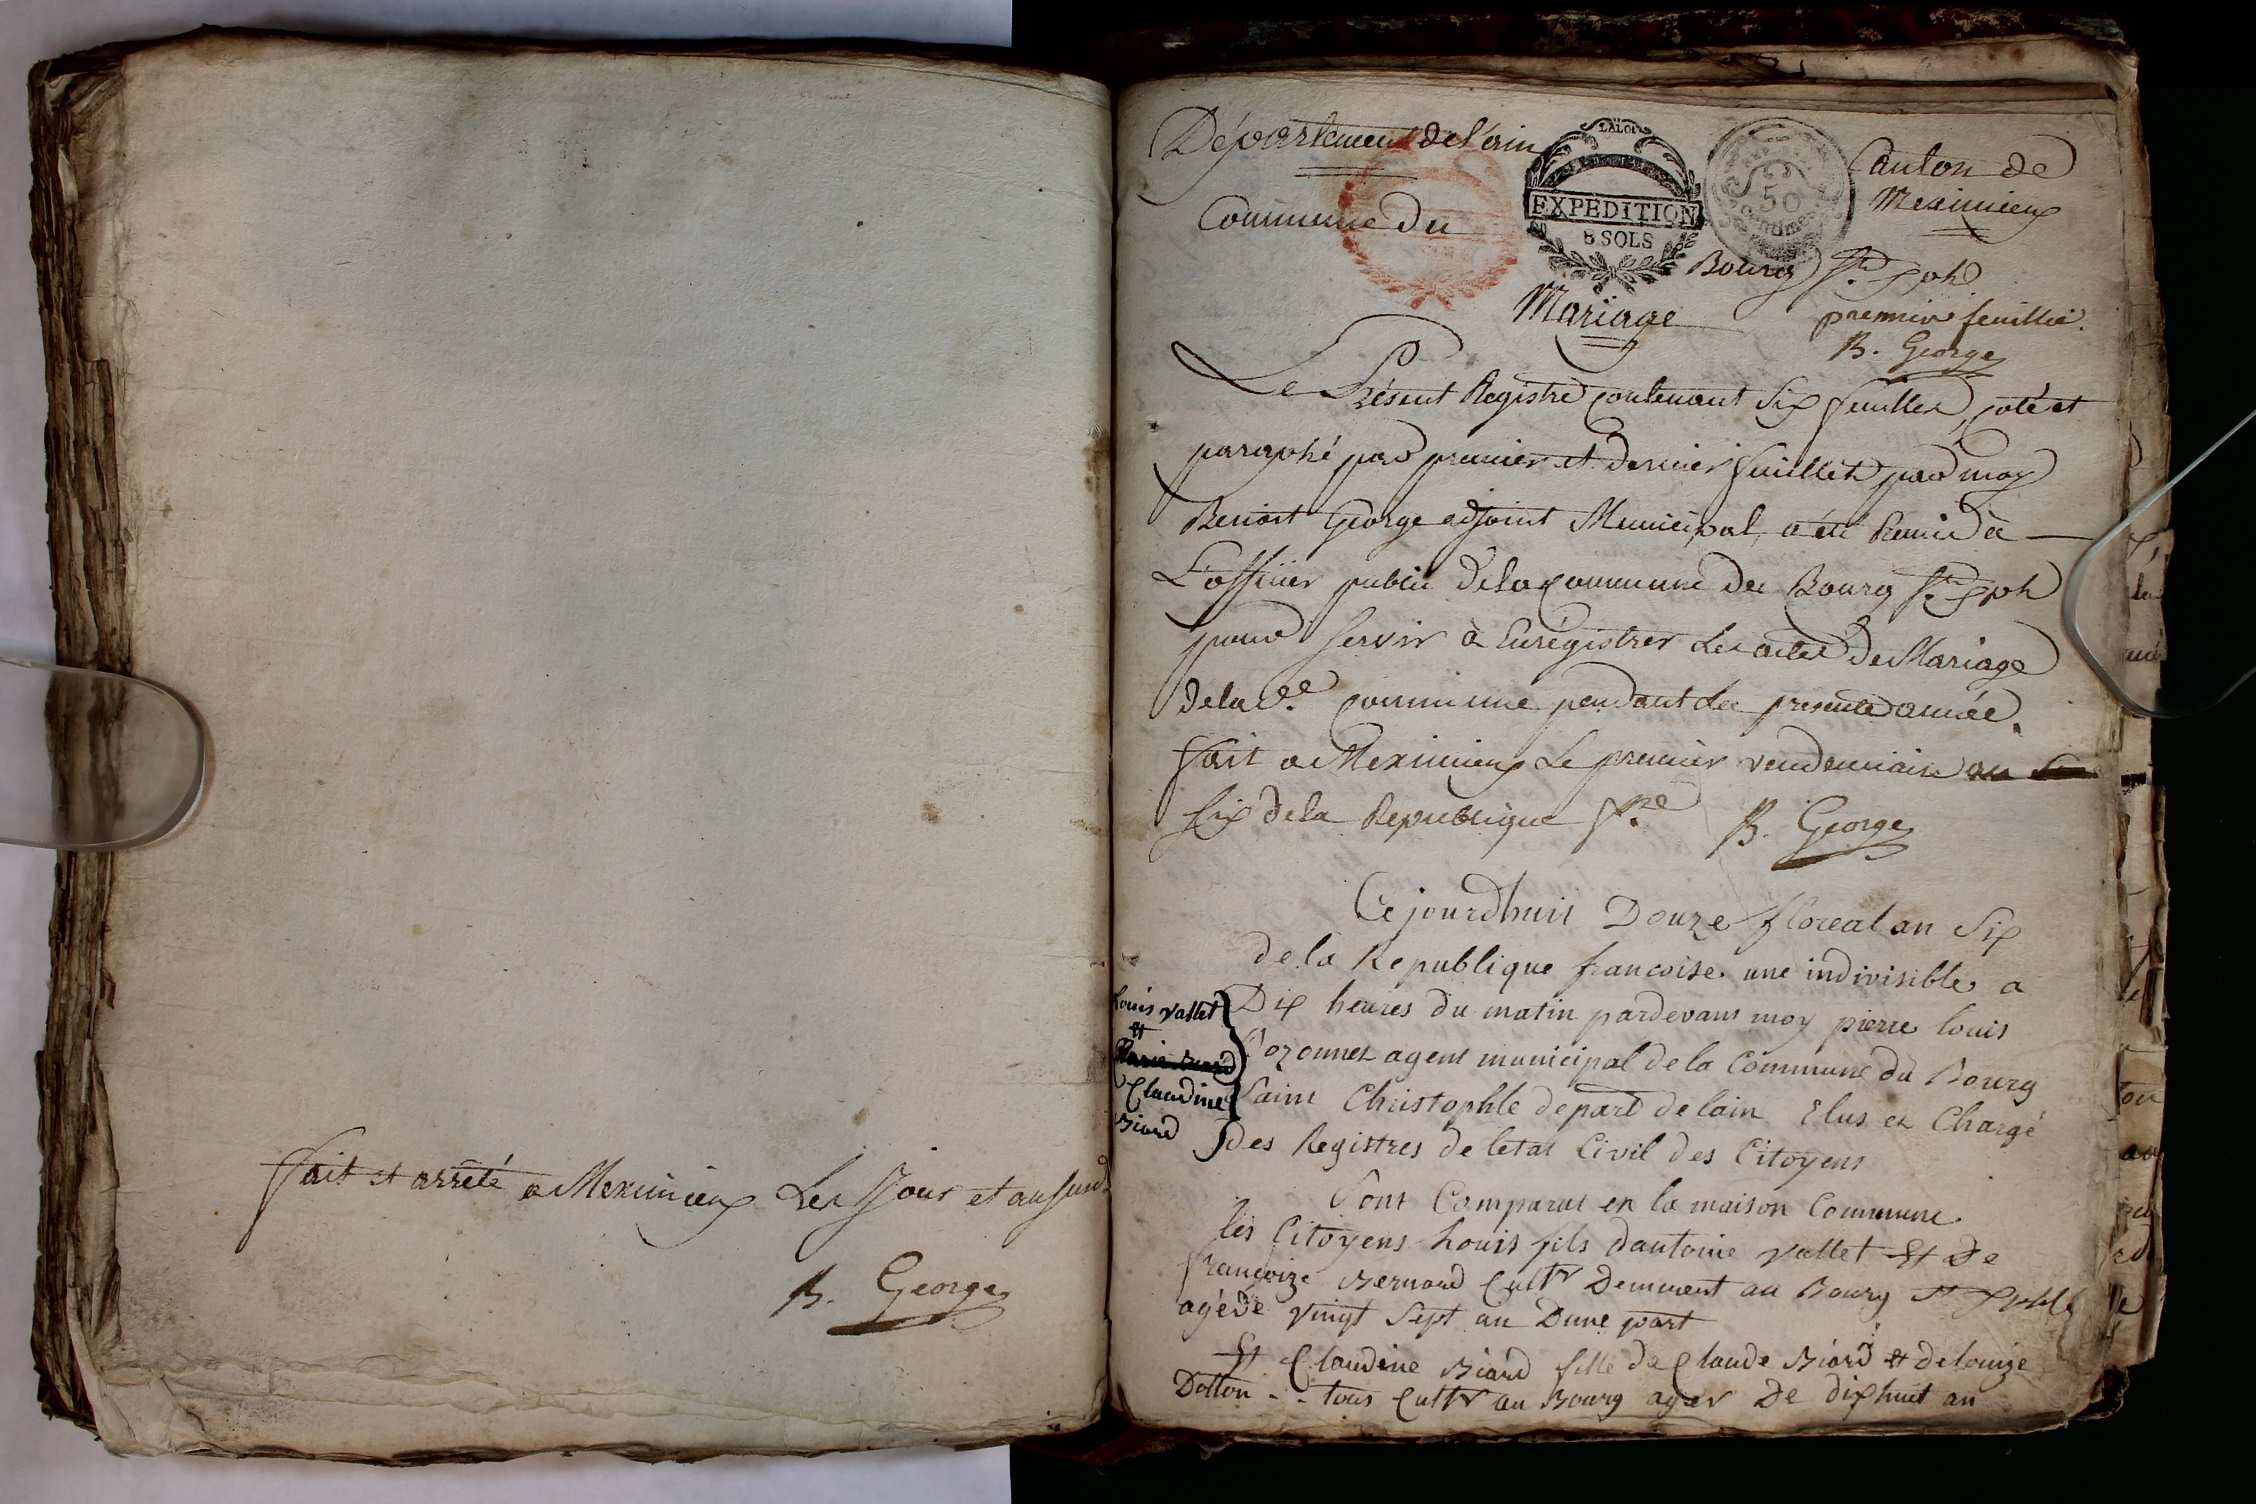 fait et arrêté a Meximieux Les Jour et an susd.
B. George
Département de l'ain
Canton de
Meximieux
LA LOI
EXPEDITION
8 SOLS
50
Centimes
Commune du
Bourg St. Xphe
Mariage
premier feuillet.
B. George
Le Présent Registre contenant Six feuillets, coté et
paraphé par premier et dernier feuillet par moy
Benoit George adjoint Municipal, a été Remis à
L'officier public de la commune du Bourg St. Xph
pour servir à Enrégistrer Les actes de Mariage
de la de. commune pendant La presente année.
fait a Meximieux Le premier vendemiaire an
Six de la Republique fse.
B. George
Cejourdhuit Douze floreal an Six
de la Republique francoise une indivisible a
Dix heures du matin pardevant moy pierre louis
agent municipal de la Commune du Bourg
Saint Christophle depart de lain Elus et Chargé
des Registres de letat Civil des Citoyens
Louis vallet
et
Claudine
Biard
Sont Comparut en la maison Commune
les Citoyens Louis fils dantoine vallet Et De
francoize Bernard Cultr Demurent au Bourg St Xphle
agéde vingt Sept an Dune part
Et Claudine Biard fille de Claude Biard et de louize
Dotton - - tous Cultr au Bourg agér De dixhuit an